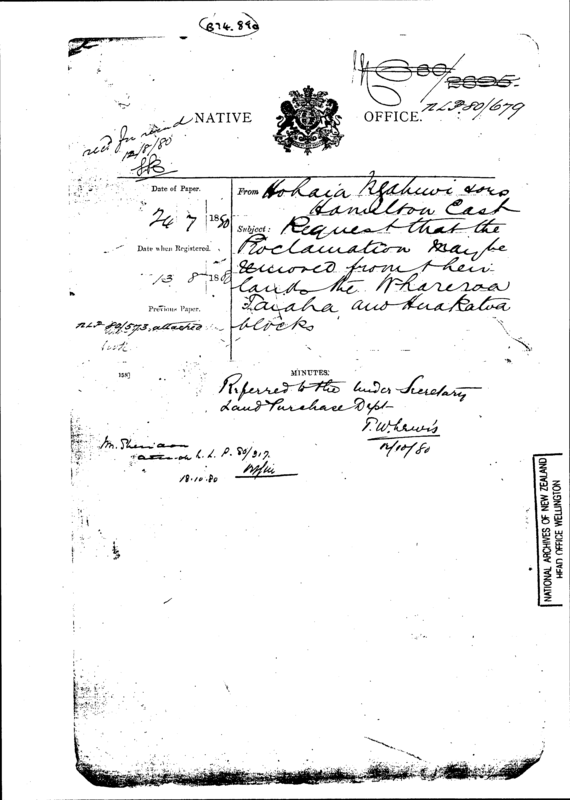 B74.89d
80/2695
N.L.P. 80/679
NATIVE OFFICE.
12/8/80
Date of Paper.
24 7 1880
Date when Registered.
13 8 1880
Previous Paper.
N.L.P. 80/573, attached
1587
From Hohaia Ngahiwi & ors
Hamilton East
Subject: Request that the
Proclamation may be
removed from their
lands the Whareroa
Taiaha and Huakatoa
blocks
MINUTES:
Referred to the Under Secretary
Land Purchase Dept
T.W. Lewis
12/10/80
Mr. Sheridan
L. P. 80/317.
18.10.80
NATIONAL ARCHIVES OF NEW ZEALAND
HEAD OFFICE WELLINGTON